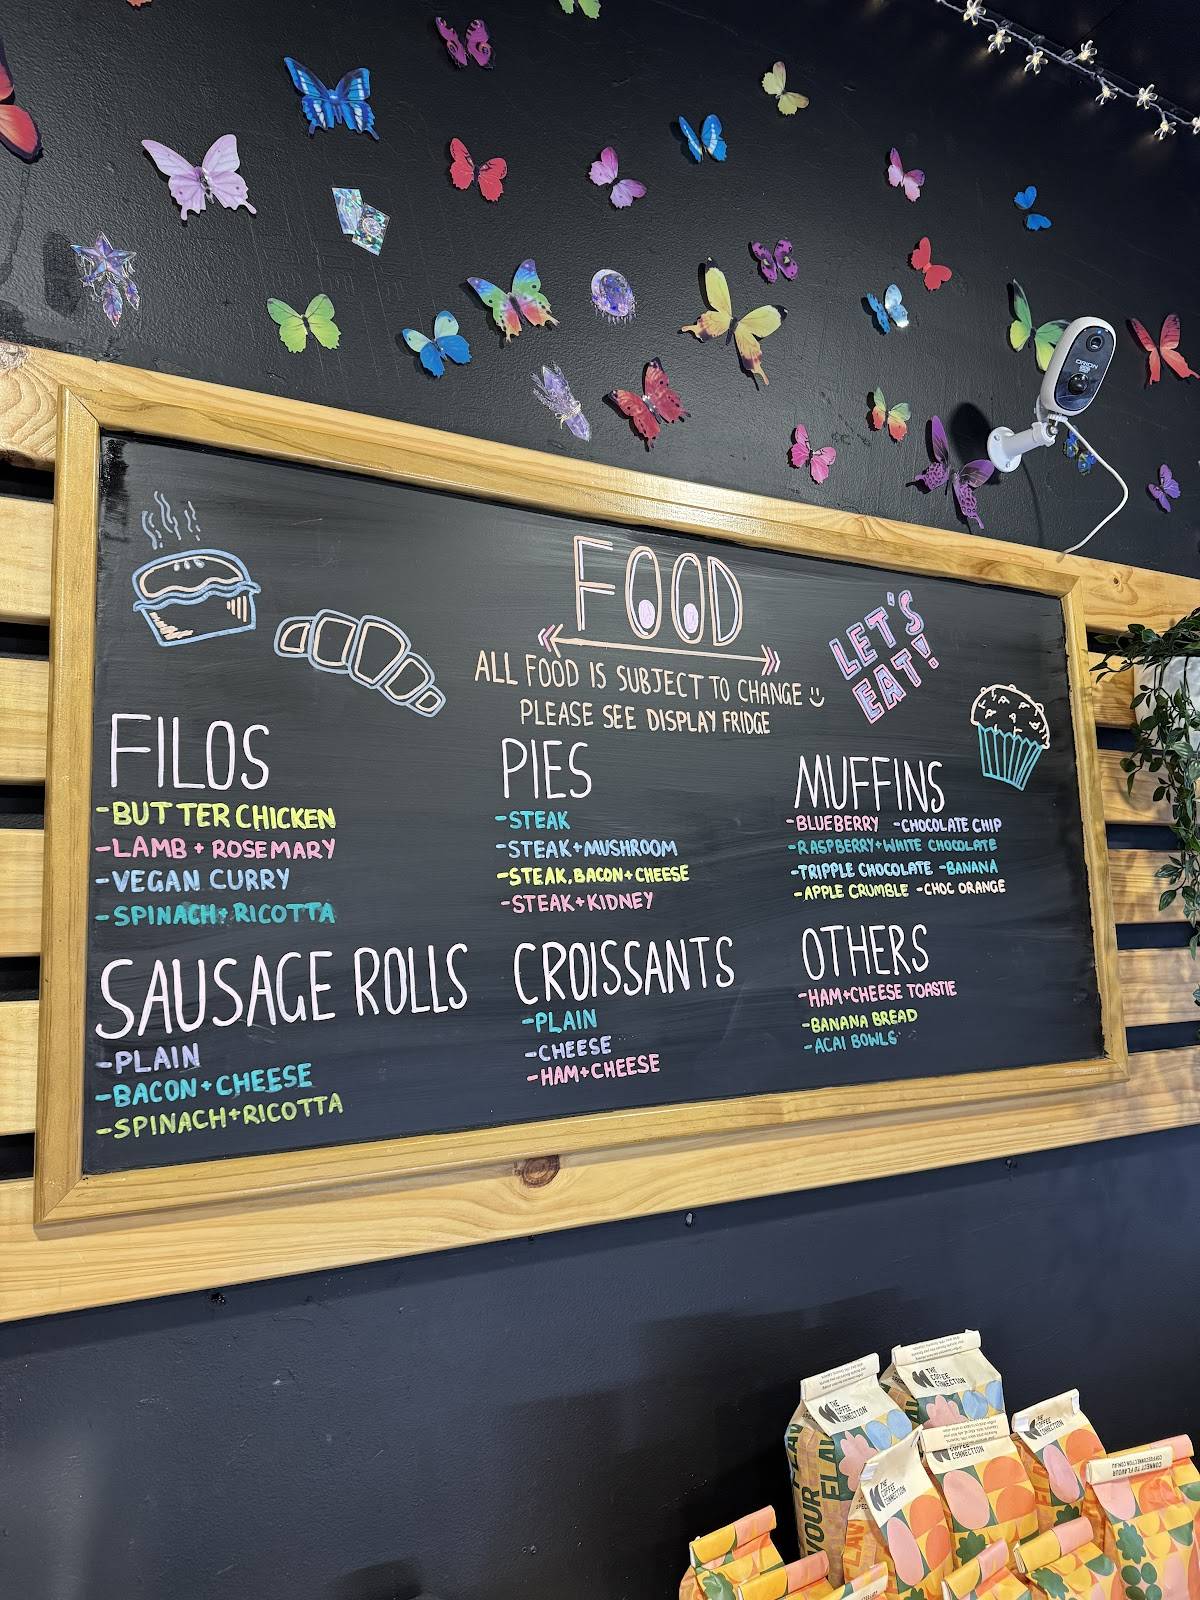 ORION
FOOD
ALL FOOD IS SUBJECT TO CHANGE
PLEASE SEE DISPLAY FRIDGE
LET'S
EAT!
FILOS
-BUTTER CHICKEN
-LAMB + ROSEMARY
-VEGAN CURRY
-SPINACH+RICOTTA
PIES
-STEAK
-STEAK+MUSHROOM
-STEAK, BACON+CHEESE
-STEAK+KIDNEY
MUFFINS
-BLUEBERRY -CHOCOLATE CHIP
-RASPBERRY+WHITE CHOCOLATE
-TRIPPLE CHOCOLATE -BANANA
-APPLE CRUMBLE -CHOC ORANGE
SAUSAGE ROLLS
-PLAIN
-BACON+CHEESE
-SPINACH+RICOTTA
CROISSANTS
-PLAIN
-CHEESE
-HAM+CHEESE
OTHERS
-HAM+CHEESE TOASTIE
-BANANA BREAD
-ACAI BOWLS
THE
COFFEE
CONNECTION
THE
COFFEE
CONNECTION
THE
COFFEE
CONNECTION
THE
COFFEE
CONNECTION
COFFEE
CONNECTION
CONNECT TO FLAVOUR
COFFEECONNECTION.COM.AU